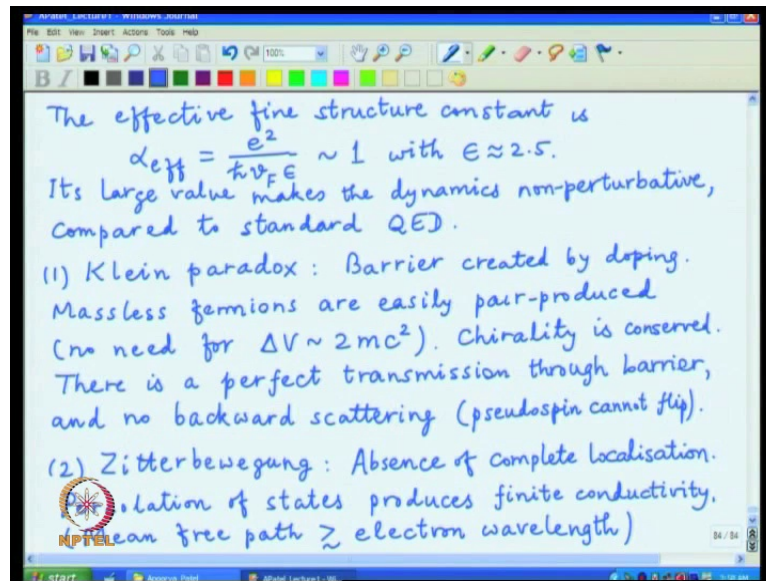 APatel_Lecture1 - Windows Journal
File Edit View Insert Actions Tools Help
100%
B I
The effective fine structure constant is
α_eff = e²/ħv_F ϵ ~ 1 with ϵ ≈ 2.5.
Its large value makes the dynamics non-perturbative,
compared to standard QED.
(1) Klein paradox : Barrier created by doping.
Massless fermions are easily pair-produced
(no need for ΔV ~ 2mc²). Chirality is conserved.
There is a perfect transmission through barrier,
and no backward scattering (pseudospin cannot flip).
(2) Zitterbewegung : Absence of complete localisation.
olation of states produces finite conductivity,
ean free path ≳ electron wavelength)
NPTEL
84 / 84
start Apoorva Patel APatel_Lecture1 - Wi...